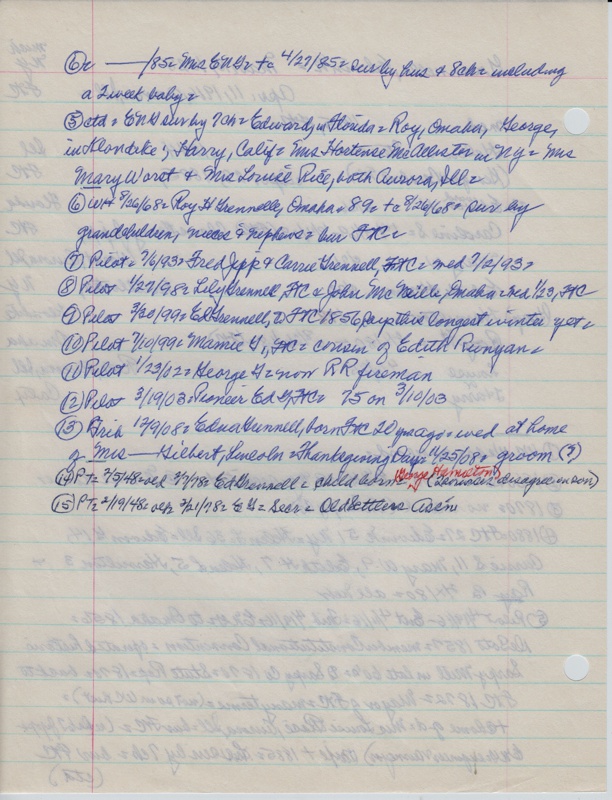 ⑥ r —— /85 = Mrs ENG = + c 4/27/85 = sur by hus & 8 ch = including
a 2 week baby =
⑤ ctd = ENG sur by 7 ch = Edward, in Florida = Roy, Omaha, George,
in Klondike, Harry, Calif = Mrs Hortense McAllister in NY = Mrs
Mary Worst & Mrs Louise Rice, both Aurora, Ill =
⑥ WH 8/26/68 = Roy H Grennelle, Omaha = 89 = + c 8/26/68 = sur by
grandchildren, nieces & nephews = bur FtC =
⑦ Pilot = 7/6/93 = Fred Jipp & Carrie Grennell, FtC = med 7/2/93 =
⑧ Pilot 1/27/98 = Lily Grennell, FtC & John McNeille, Omaha = wed 1/23, FtC
⑨ Pilot 3/30/99 = Ed Grennell, to FtC 1856, says this longest winter yet =
⑩ Pilot 7/10/99 = Mamie G, FtC = cousin of Edith Runyan =
⑪ Pilot 1/23/02 = George G = now RR fireman
⑫ Pilot 3/19/03 = Pioneer Ed G, FtC = 75 on 3/10/03
⑬ Trib 12/9/08 = Edna Grennell, born FtC 20 yrs ago = wed at home
of Mrs —— Gilbert, Lincoln = Thanksgiving Day = 11/25/08 = groom (?)
George Hamilton
⑭ PT = 2/5/48 = wed 3/7/78 = Ed Grennell = child born (disagree on son)
⑮ PT = 2/19/48 = 2/21/78 = E G = Secr = Old Settlers Assn